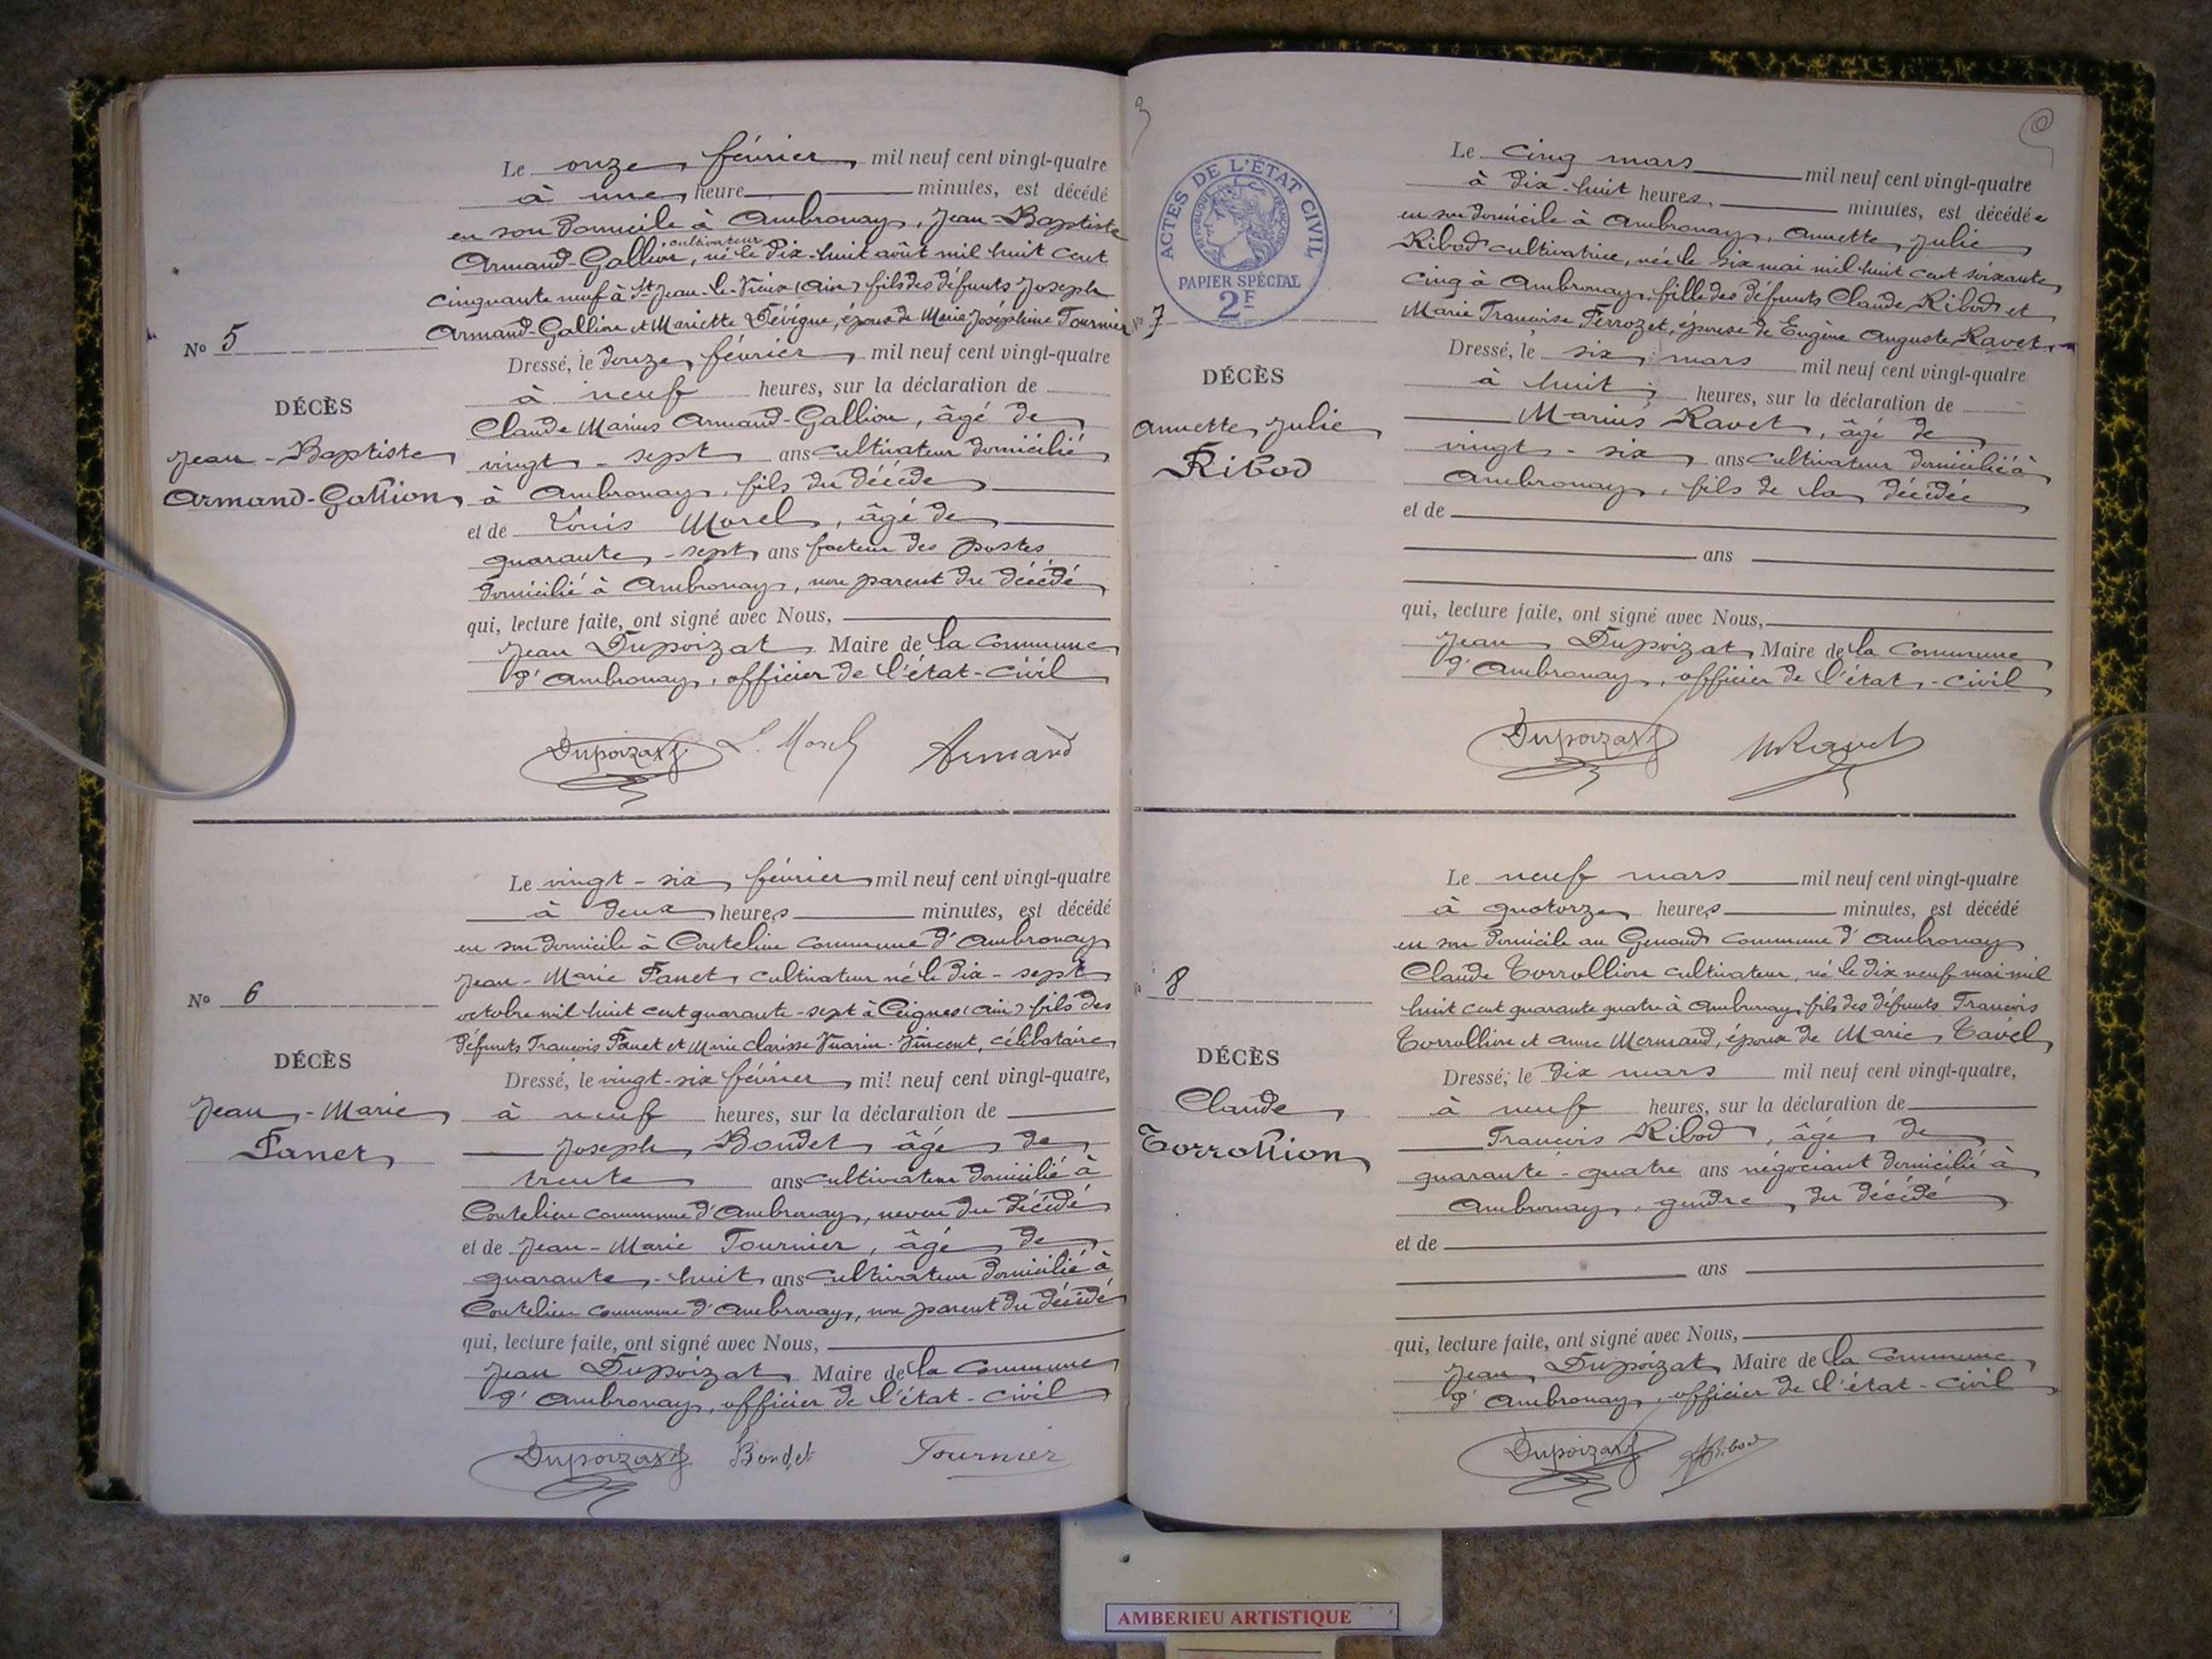 Le onze février mil neuf cent vingt-quatre
à une heure minutes, est décédé
en son domicile à Ambronay, Jean-Baptiste
cultivateur
Armand-Gallion, né le dix-huit août mil huit cent
cinquante neuf à St Jean-le-Vieux (Ain) fils des défunts Joseph
Armand-Gallion et Mariette Dévigne, époux de Marie Joséphine Tournier
No 5
Dressé, le douze février mil neuf cent vingt-quatre
à neuf heures, sur la déclaration de
DÉCÈS
Claude Marius Armand-Gallion, âgé de
Jean-Baptiste
vingt-sept ans cultivateur domicilié
Armand-Gallion
à Ambronay, fils du décédé
et de Louis Morel, âgé de
quarante-sept ans facteur des postes
domicilié à Ambronay, non parent du décédé
qui, lecture faite, ont signé avec Nous,
Jean Dupoizat Maire de la Commune
d'Ambronay, officier de l'état-civil
Dupoizat L. Morel Armand
Le vingt-six février mil neuf cent vingt-quatre
à deux heures minutes, est décédé
en son domicile à Coutelieu commune d'Ambronay
Jean-Marie Fanet, cultivateur né le dix-sept
No 6
octobre mil huit cent quarante-sept à Ceignes (Ain) fils des
défunts François Fanet et Marie Clarisse Vuarin-Vincent, célibataire
DÉCÈS
Dressé, le vingt-six février mil neuf cent vingt-quatre,
Jean-Marie
à neuf heures, sur la déclaration de
Fanet
Joseph Bondet âgé de
trente ans cultivateur domicilié à
Coutelieu commune d'Ambronay, neveu du décédé
et de Jean-Marie Tournier, âgé de
quarante-huit ans cultivateur domicilié à
Coutelieu commune d'Ambronay, non parent du décédé
qui, lecture faite, ont signé avec Nous,
Jean Dupoizat Maire de la Commune
d'Ambronay, officier de l'état-civil
Dupoizat Bondet Tournier
3
ACTES DE L'ÉTAT CIVIL
RÉPUBLIQUE FRANÇAISE
PAPIER SPÉCIAL
2F
Le cinq mars mil neuf cent vingt-quatre
à dix-huit heures, minutes, est décédée
en son domicile à Ambronay, Annette Julie
Ribod cultivatrice, née le six mai mil huit cent soixante
cinq à Ambronay, fille des défunts Claude Ribod et
Marie Françoise Ferrozet, épouse de Eugène Auguste Ravet
No 7
Dressé, le six mars mil neuf cent vingt-quatre
DÉCÈS
à huit heures, sur la déclaration de
Annette Julie
Marius Ravet, âgé de
Ribod
vingt-six ans cultivateur domicilié à
Ambronay, fils de la décédée
et de
ans
qui, lecture faite, ont signé avec Nous,
Jean Dupoizat Maire de la Commune
d'Ambronay, officier de l'état-civil
Dupoizat MRavet
Le neuf mars mil neuf cent vingt-quatre
à quatorze heures minutes, est décédé
en son domicile au Genoud commune d'Ambronay
Claude Corrollion cultivateur, né le dix neuf mai mil
No 8
huit cent quarante quatre à Ambronay, fils des défunts François
Corrollion et Anne Mermand, époux de Marie Cavel
DÉCÈS
Dressé, le dix mars mil neuf cent vingt-quatre,
Claude
à neuf heures, sur la déclaration de
Corrollion
François Ribod, âgé de
quarante-quatre ans négociant domicilié à
Ambronay, gendre du décédé
et de
ans
qui, lecture faite, ont signé avec Nous,
Jean Dupoizat Maire de la Commune
d'Ambronay, officier de l'état-civil
Dupoizat Ribod
AMBERIEU ARTISTIQUE